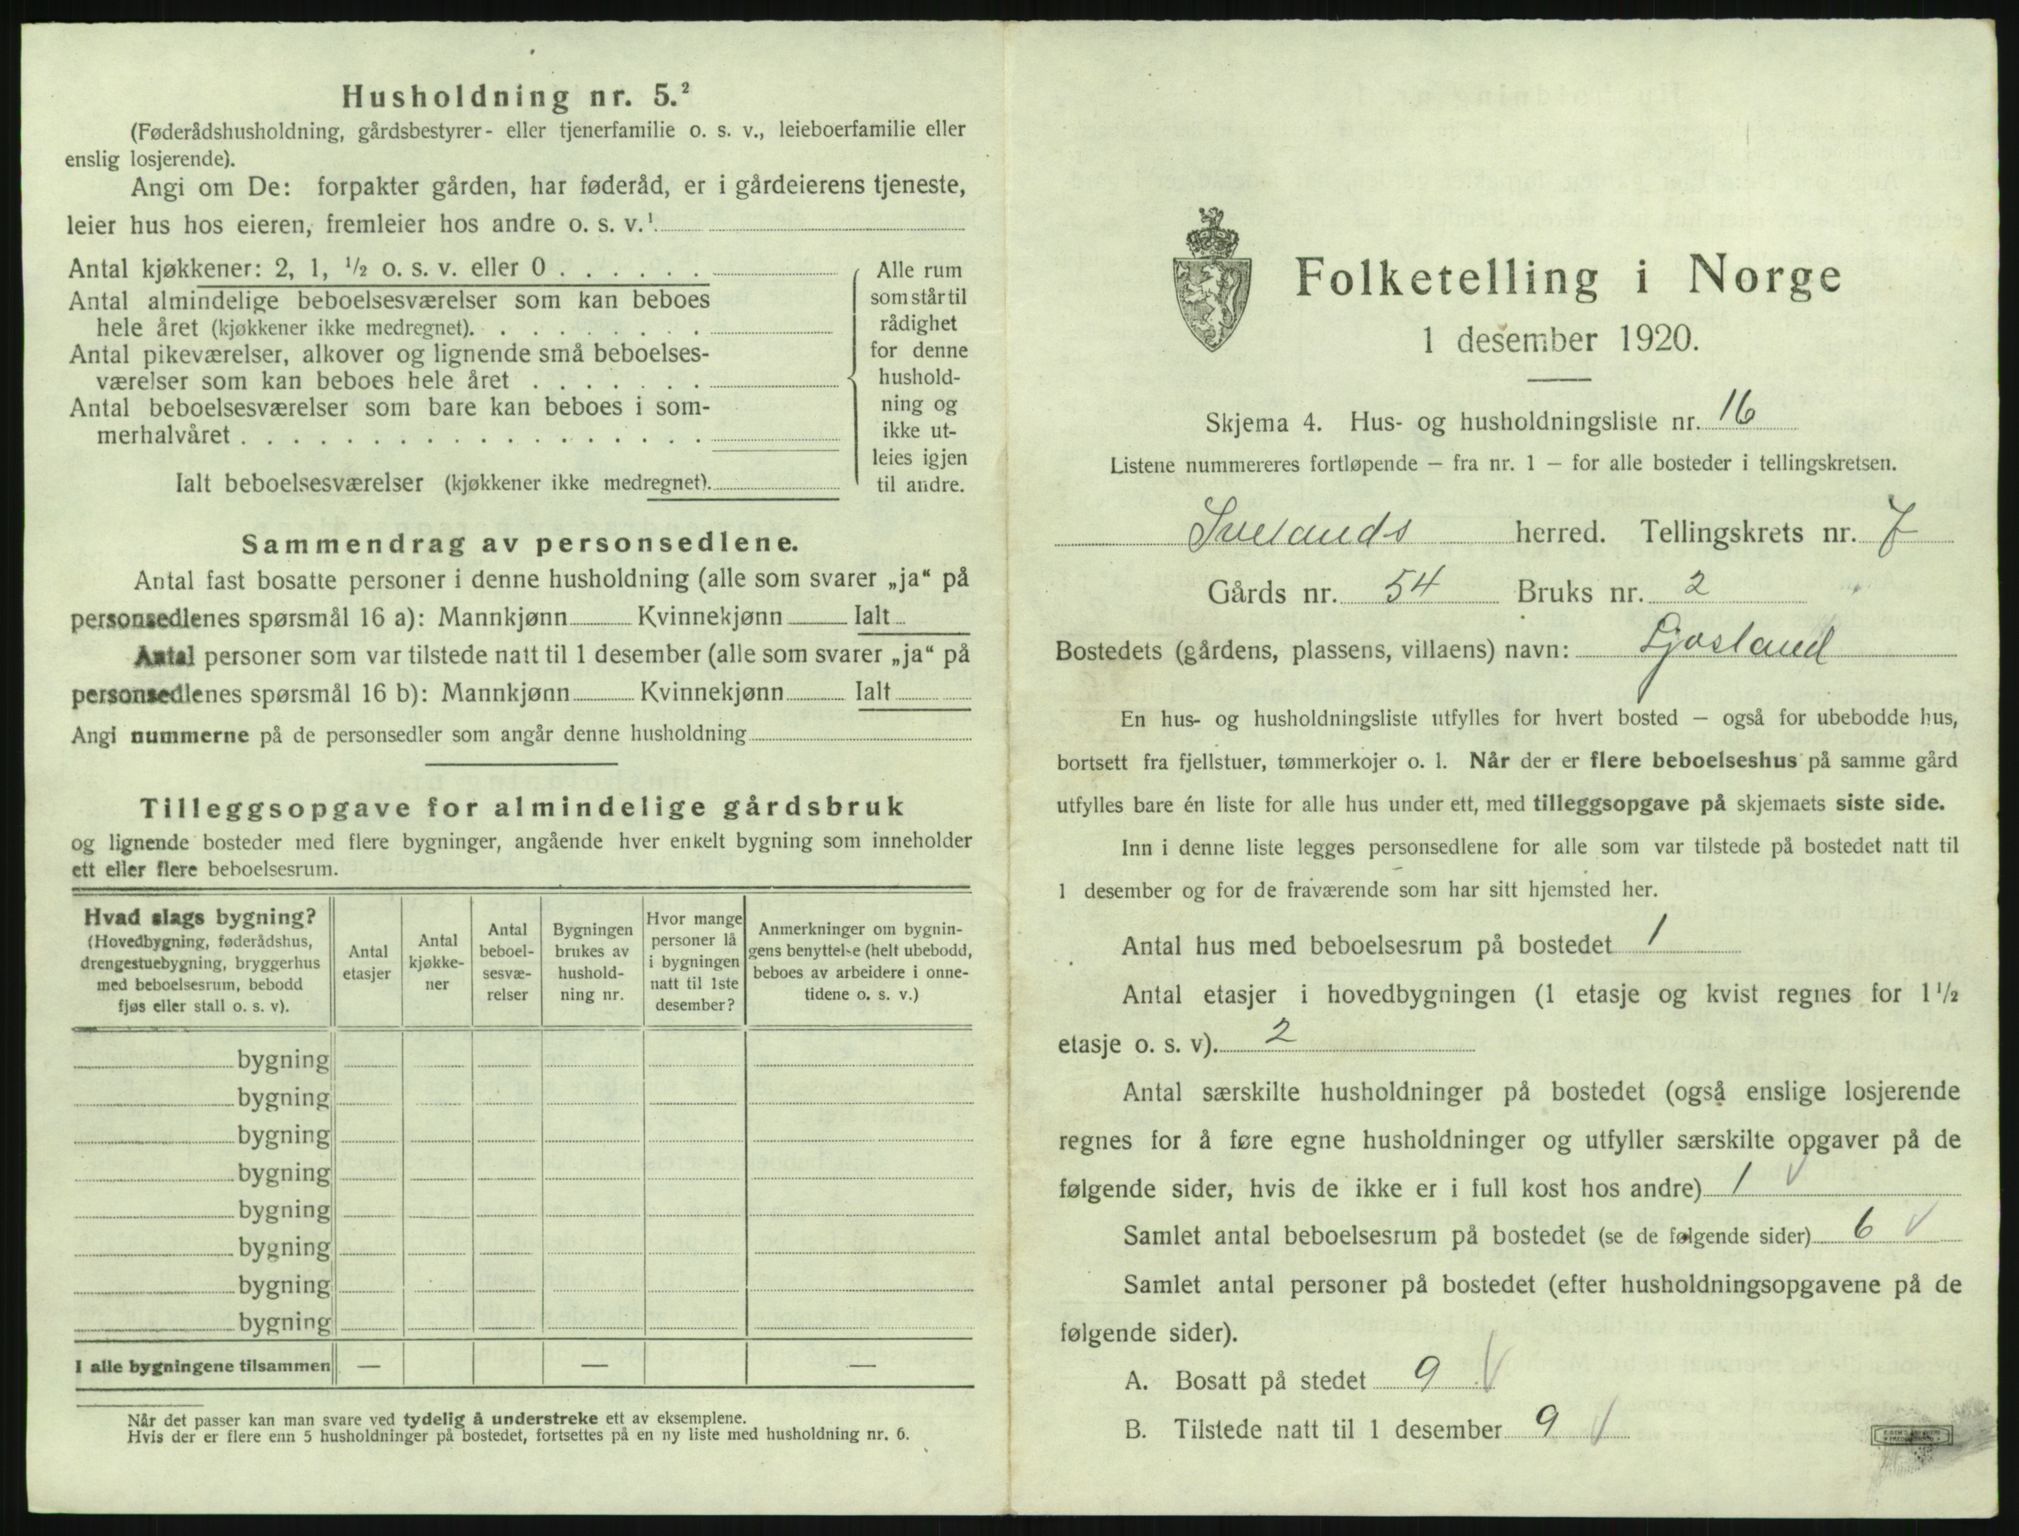 Husholdning nr. 5.²
(Føderådshusholdning, gårdsbestyrer- eller tjenerfamilie o. s. v., leieboerfamilie eller
enslig losjerende).
Angi om De: forpakter gården, har føderåd, er i gårdeierens tjeneste,
leier hus hos eieren, fremleier hos andre o. s. v.¹
Antal kjøkkener: 2, 1, ½ o. s. v. eller 0 . . . . . .
Antal almindelige beboelsesværelser som kan beboes
hele året (kjøkkener ikke medregnet). . . . . . . . .
Antal pikeværelser, alkover og lignende små beboelses-
værelser som kan beboes hele året . . . . . . .
Antal beboelsesværelser som bare kan beboes i som-
merhalvåret . . . . . . . . . . . . . . . . . .
Ialt beboelsesværelser (kjøkkener ikke medregnet).
Alle rum
som står til
rådighet
for denne
hushold-
ning og
ikke ut-
leies igjen
til andre.
Sammendrag av personsedlene.
Antal fast bosatte personer i denne husholdning (alle som svarer „ja“ på
personsedlenes spørsmål 16 a): Mannkjønn Kvinnekjønn Ialt
Antal personer som var tilstede natt til 1 desember (alle som svarer „ja“ på
personsedlenes spørsmål 16 b): Mannkjønn Kvinnekjønn Ialt
Angi nummerne på de personsedler som angår denne husholdning
Tilleggsopgave for almindelige gårdsbruk
og lignende bosteder med flere bygninger, angående hver enkelt bygning som inneholder
ett eller flere beboelsesrum.
Hvad slags bygning?
(Hovedbygning, føderådshus,
drengestuebygning, bryggerhus
med beboelsesrum, bebodd
fjøs eller stall o. s. v).
Antal
etasjer
Antal
kjøkke-
ner
Antal
beboel-
sesvæ-
relser
Bygningen
brukes av
hushold-
ning nr.
Hvor mange
personer lå
i bygningen
natt til 1ste
desember?
Anmerkninger om bygnin-
gens benyttelse (helt ubebodd,
beboes av arbeidere i onne-
tidene o. s. v.)
bygning
bygning
bygning
bygning
bygning
bygning
bygning
bygning
I alle bygningene tilsammen — — —
Når det passer kan man svare ved tydelig å understreke ett av eksemplene.
Hvis der er flere enn 5 husholdninger på bostedet, fortsettes på en ny liste med husholdning nr. 6.
Folketelling i Norge
1 desember 1920.
Skjema 4. Hus- og husholdningsliste nr. 16
Listene nummereres fortløpende – fra nr. 1 – for alle bosteder i tellingskretsen.
Ivelands herred. Tellingskrets nr. 7
Gårds nr. 54 Bruks nr. 2
Bostedets (gårdens, plassens, villaens) navn: Ljosland
En hus- og husholdningsliste utfylles for hvert bosted – også for ubebodde hus,
bortsett fra fjellstuer, tømmerkojer o. l. Når der er flere beboelseshus på samme gård
utfylles bare én liste for alle hus under ett, med tilleggsopgave på skjemaets siste side.
Inn i denne liste legges personsedlene for alle som var tilstede på bostedet natt til
1 desember og for de fraværende som har sitt hjemsted her.
Antal hus med beboelsesrum på bostedet 1
Antal etasjer i hovedbygningen (1 etasje og kvist regnes for 1½
etasje o. s. v). 2
Antal særskilte husholdninger på bostedet (også enslige losjerende
regnes for å føre egne husholdninger og utfyller særskilte opgaver på de
følgende sider, hvis de ikke er i full kost hos andre) 1 √
Samlet antal beboelsesrum på bostedet (se de følgende sider) 6 √
Samlet antal personer på bostedet (efter husholdningsopgavene på de
følgende sider).
A. Bosatt på stedet 9 √
B. Tilstede natt til 1 desember 9 √